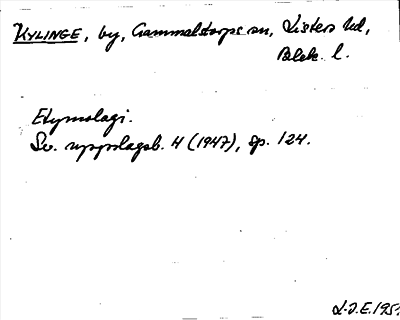 KYLINGE, by, Gammalstorps sn, Listers hd,
Blek. l.
Etymologi.
Sv. uppslagsb. 4 (1947), sp. 124.
L.J.E. 195